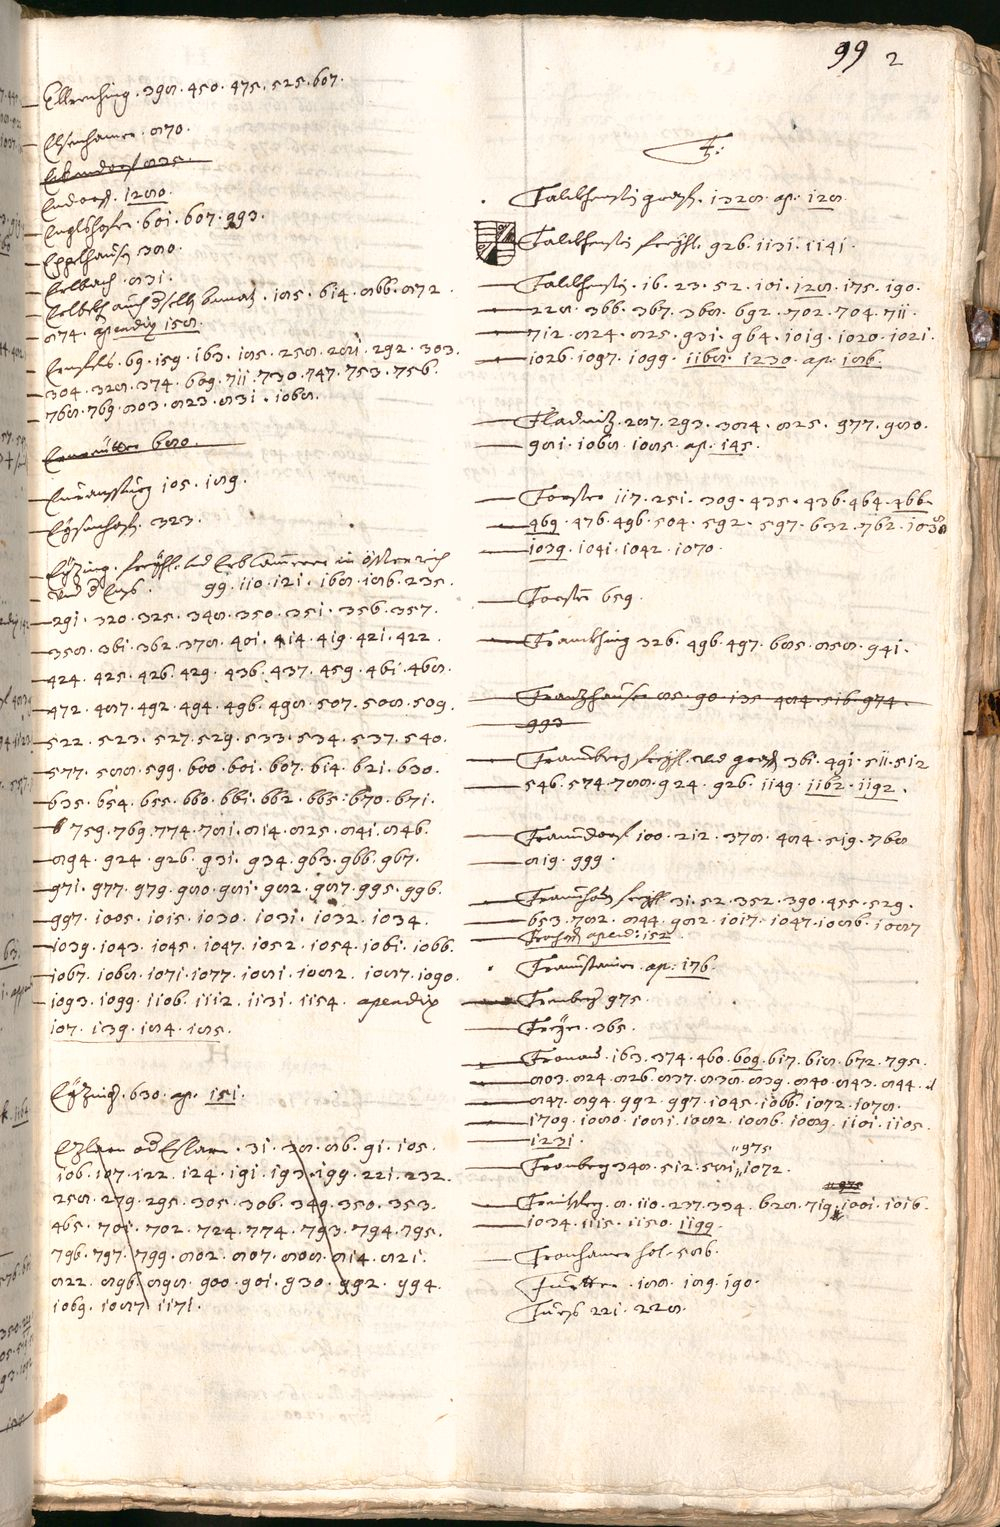 99 2
Ellerching . 398 . 450 . 475 . 525 . 607 .
Elsenhamer . 870 .
Endorf . 1280 .
Englshofer . 601 . 607 . 993 .
Eppelhauser 380 .
Erlbach . 831 .
185 . 614 . 866 . 872 .
874 . apendix 158 .
69 . 159 . 163 . 185 . 258 . 281 . 292 . 303 .
304 . 328 . 374 . 609 . 711 . 730 . 747 . 753 . 756 .
768 . 769 . 803 . 823 . 831 . 1068 .
680 .
105 . 189 .
Eysenhofer . 323 .
Eyzing . freyh. und Erbcamerer in Österreich
und d Ens . 99 . 110 . 121 . 168 . 186 . 235 .
291 . 320 . 325 . 348 . 350 . 351 . 356 . 357 .
358 . 361 . 362 . 378 . 401 . 414 . 419 . 421 . 422 .
424 . 425 . 426 . 429 . 436 . 437 . 459 . 461 . 468 .
472 . 487 . 492 . 494 . 496 . 498 . 507 . 508 . 509 .
522 . 523 . 527 . 529 . 533 . 534 . 537 . 540 .
577 . 588 . 599 . 600 . 601 . 607 . 614 . 621 . 630 .
635 . 654 . 655 . 660 . 661 . 662 . 665 . 670 . 671 .
759 . 769 . 774 . 781 . 814 . 825 . 841 . 846 .
894 . 924 . 926 . 931 . 934 . 963 . 966 . 967 .
971 . 977 . 979 . 980 . 981 . 982 . 987 . 995 . 996 .
997 . 1005 . 1015 . 1030 . 1031 . 1032 . 1034 .
1039 . 1043 . 1045 . 1047 . 1052 . 1054 . 1061 . 1066 .
1067 . 1068 . 1071 . 1077 . 1081 . 1082 . 1087 . 1090 .
1093 . 1099 . 1106 . 1112 . 1131 . 1154 . apendix
107 . 139 . 184 . 185 .
Eyzinger . 630 . ap . 151 .
Ezlarn od Eslarn . 31 . 38 . 86 . 91 . 105 .
106 . 107 . 122 . 124 . 191 . 193 . 199 . 221 . 232 .
258 . 279 . 295 . 305 . 306 . 349 . 350 . 353 .
465 . 701 . 702 . 724 . 774 . 793 . 794 . 795 .
796 . 797 . 799 . 802 . 807 . 808 . 814 . 821 .
822 . 896 . 898 . 900 . 901 . 930 . 992 . 994 .
1069 . 1087 . 1171 .
F :
Falckhenstein graf . 1328 . ap . 128
Falckhenstein freyh . 926 . 1131 . 1141 .
Falckhenstein . 16 . 23 . 52 . 101 . 128 . 175 . 190 .
228 . 366 . 367 . 368 . 692 . 702 . 704 . 711 .
712 . 824 . 825 . 931 . 964 . 1019 . 1020 . 1021 .
1026 . 1097 . 1099 . 1168 . 1230 . ap . 186 .
Fladnitz . 287 . 293 . 384 . 825 . 977 . 980 .
981 . 1068 . 1085 . ap . 145 .
Forster 117 . 251 . 309 . 435 . 436 . 464 . 466 .
469 . 476 . 496 . 504 . 592 . 597 . 632 . 762 . 1038
1039 . 1041 . 1042 . 1070 .
Forster 659 .
Franckhing 326 . 496 . 497 . 685 . 858 . 941 .
Franzhauser 85 . 90 . 135 . 484 . 516 . 974 .
993
Fraunberg freyh und graf 361 . 491 . 511 . 512
546 . 574 . 788 . 924 . 926 . 1149 . 1162 . 1192 .
Fraundorf 100 . 212 . 378 . 484 . 519 . 768
819 . 999 .
Fraunhofen freyh 31 . 52 . 352 . 390 . 455 . 529 .
653 . 782 . 844 . 982 . 1017 . 1047 . 1086 . 1087
apend : 152
ap . 176 .
Frenberg 975 .
Freyer . 365 .
Fronau . 163 . 374 . 460 . 609 . 617 . 618 . 672 . 795 .
803 . 824 . 826 . 837 . 838 . 839 . 840 . 843 . 844 .
847 . 894 . 992 . 997 . 1045 . 1066 . 1072 . 1078 .
1709 . 1080 . 1081 . 1082 . 1086 . 1089 . 1101 . 1105 .
1231 .
" 975
Fronberg 348 . 512 . 581 " 1072 .
" 975
8 . 110 . 237 . 334 . 628 . 719 . 1001 . 1016 .
1034 . 1115 . 1150 . 1199
Fronhamer hol . 586 .
188 . 189 . 190 .
221 . 228 .